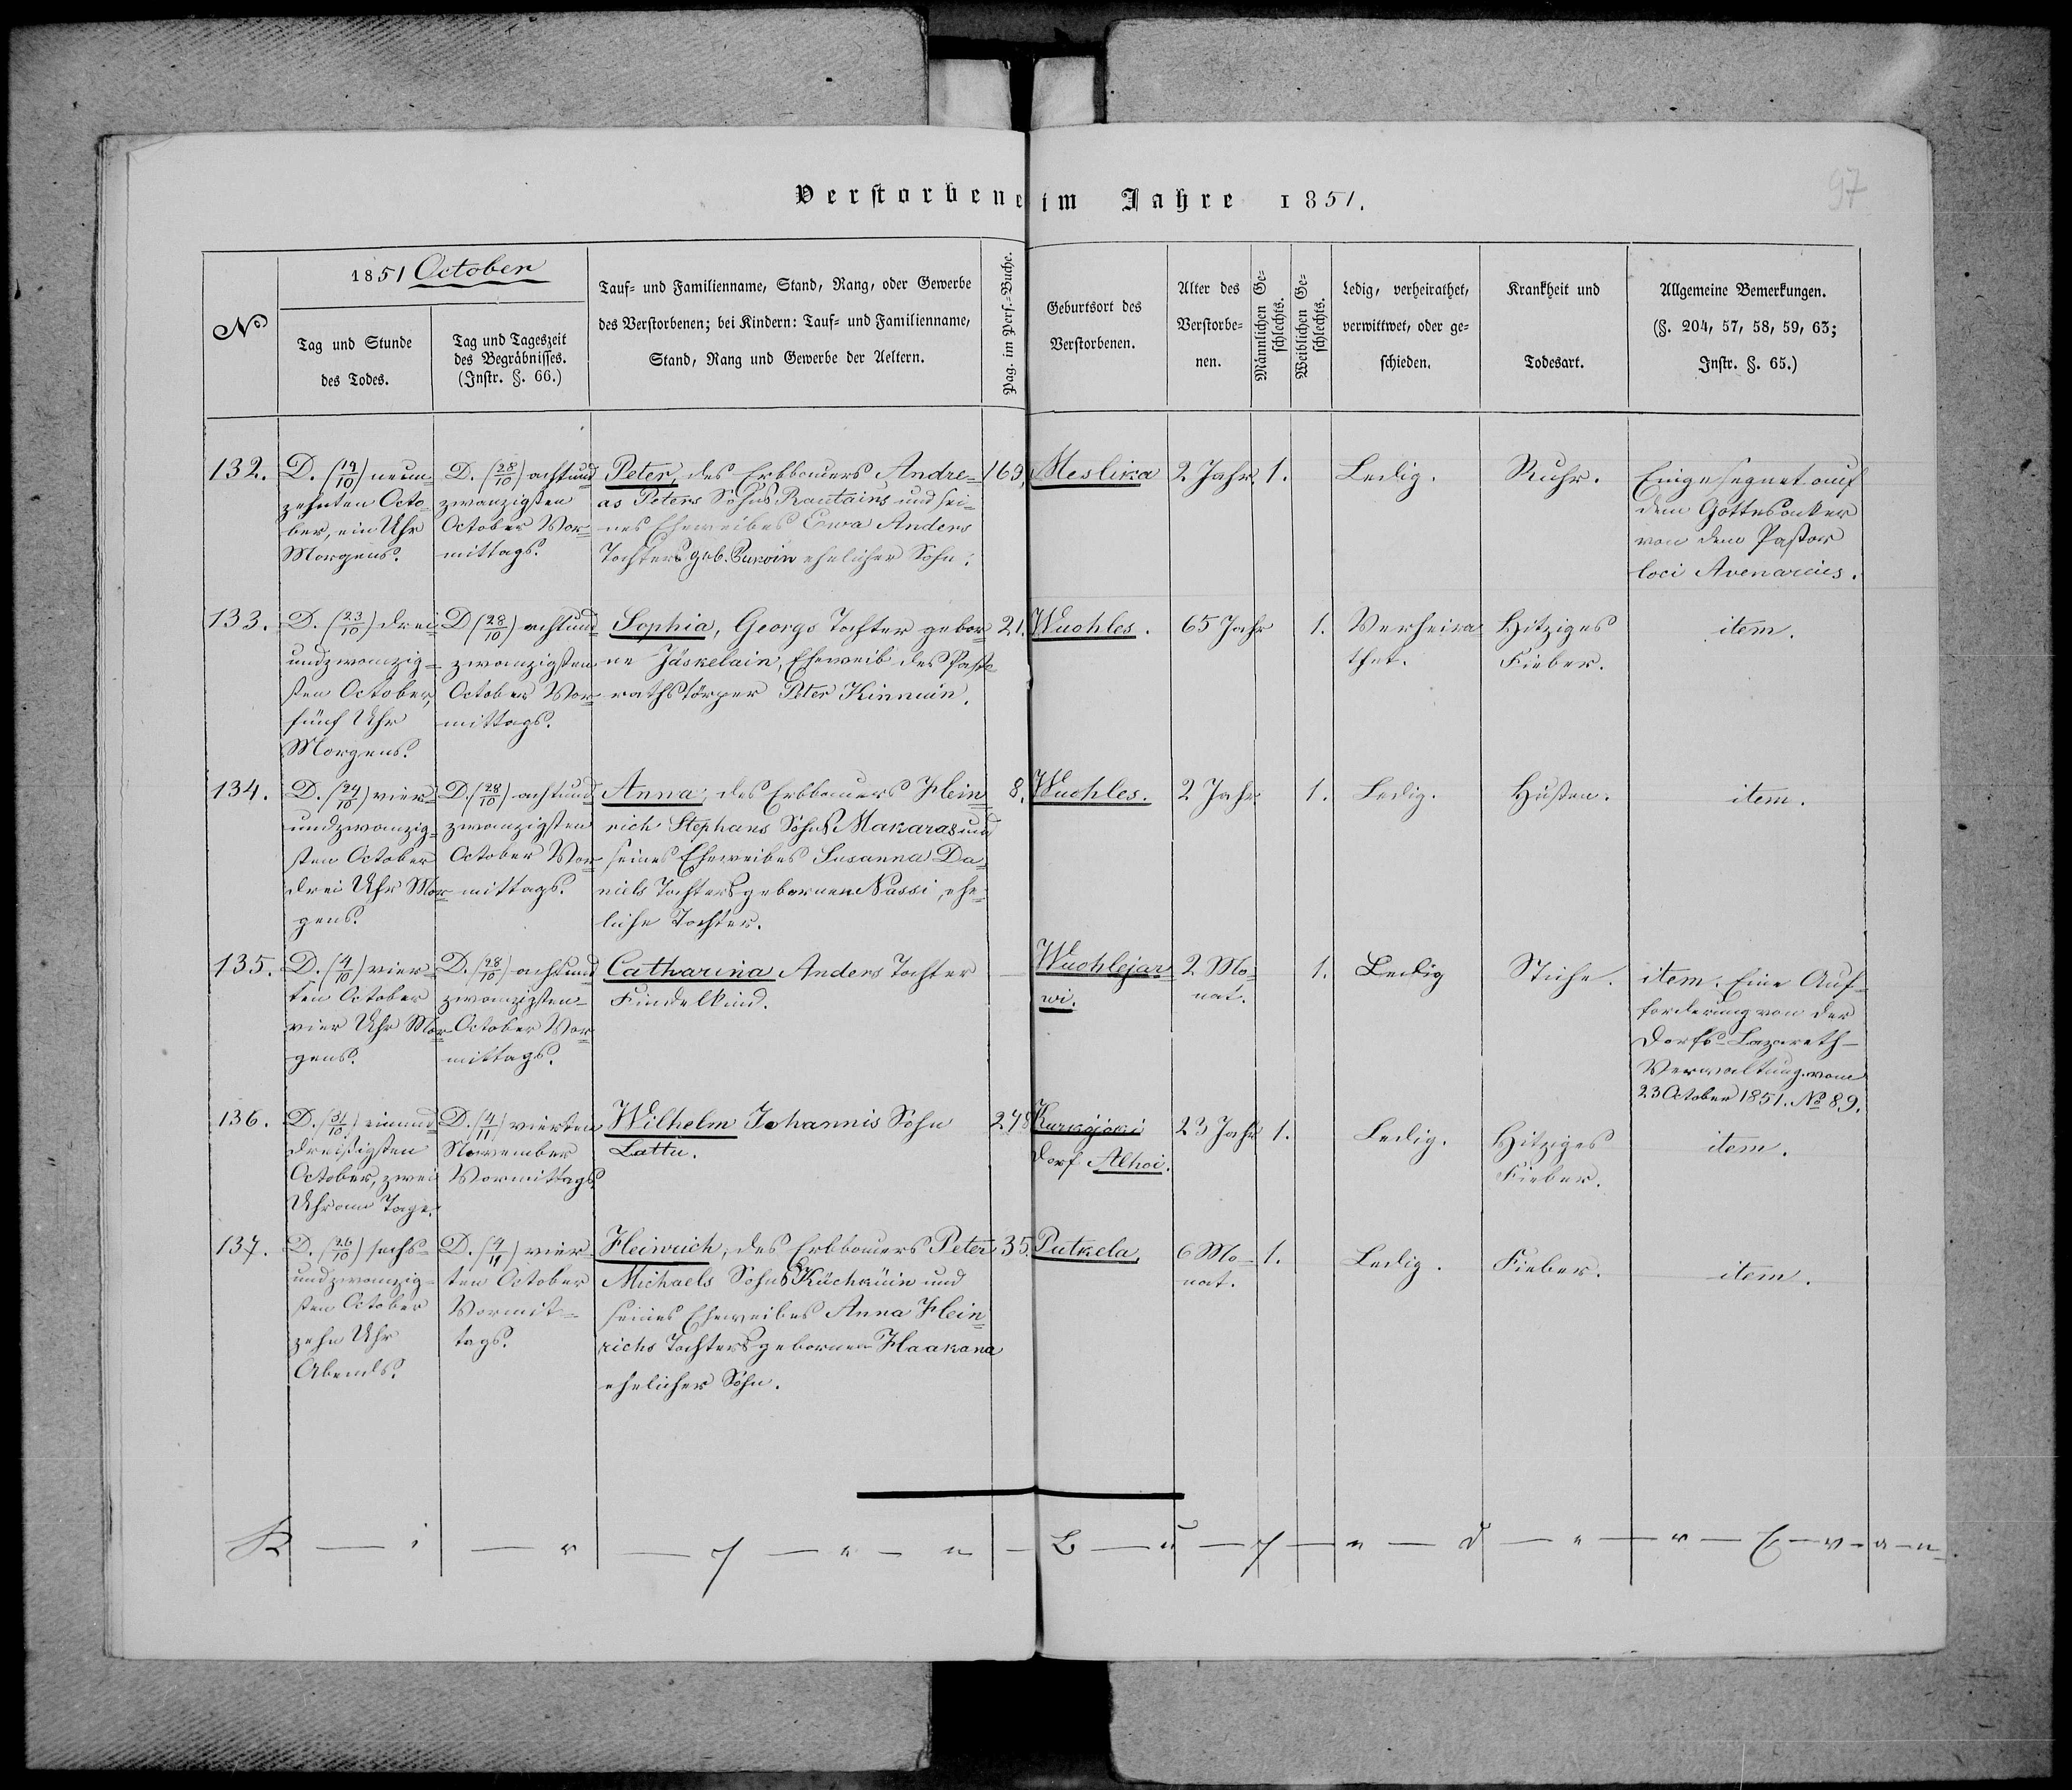 Verstorbene im Jahre 1851.
97
No
1851 October
Tag und Stunde
des Todes.
Tag und Tageszeit
des Begräbnisses.
(Instr. §. 66.)
Tauf- und Familienname, Stand, Rang, oder Gewerbe
des Verstorbenen; bei Kindern: Tauf- und Familienname,
Stand, Rang und Gewerbe der Aeltern.
Pag. im Pers.-Buche.
Geburtsort des
Verstorbenen.
Alter des
Verstorbe-
nen.
Männlichen Ge-
schlechts.
Weiblichen Ge-
schlechts.
Ledig, verheirathet,
verwittwet, oder ge-
schieden.
Krankheit und
Todesart.
Allgemeine Bemerkungen.
(§. 204, 57, 58, 59, 63;
Instr. §. 65.)
132.
D. (19/10) neun-
zehnten Octo-
ber, ein Uhr
Morgens.
D. (28/10) achtund
zwanzigsten
October Vor-
mittags.
Peter, des Erbbauers Andre-
as Peters Sohns Rautains und sei-
nes Eheweibes Ewa Anders
Tochters geb. ehelicher Sohn.
169,
Meslika
2 Jahr
1.
Ledig.
Ruhr.
Eingesegnet auf
dem Gottesacker
von dem Pastor
loci Avenarius.
133.
D. (23/10) drei-
undzwanzig-
sten October,
fünf Uhr
Morgens.
D (28/10) achtund-
zwanzigsten
October Vor-
mittags.
Sophia, Georgs Tochter gebor-
ne Jäskelain, Eheweib des Pasto-
rathslörper Peter Kinnuin.
21.
Wuohles.
65 Jahr
1.
Verheira
thet.
Hitziges
Fieber.
item.
134.
D. (24/10) vier-
undzwanzig-
sten October
drei Uhr Mor-
gens.
D. (28/10) achtund-
zwanzigsten
October Vor-
mittags.
Anna, des Erbbauers Hein-
rich Stephans Sohns Makaras und
seines Eheweibes Susanna Da-
niels Tochters gebornen Nassi, ehe-
liche Tochter.
8.
Wuohles.
2 Jahr
1.
Ledig.
Husten.
item.
135.
D. (4/10) vier-
ten October
vier Uhr Mor-
gens.
D. (28/10) achtund
zwanzigsten
October Vor-
mittags.
Catharina Anders Tochter
Findelkind.
Wuohlejar-
wi.
2 Mo-
nat.
1.
Ledig
Stiche.
item. Eine Auf-
forderung von der
Dorfs-Lazareth-
Verwaltung vom
23 October 1851. No 89.
136.
D. (31/10) einund-
dreißigsten
October, zwei
Uhr am Tage.
D. (4/11) vierten
November
Vormittags.
Wilhelm Johannis Sohn
Lattu.
248
Kurkijoki
Dorf Alhoi.
23 Jahr
1.
Ledig.
Hitziges
Fieber.
item.
137.
D. (26/10) sechs-
undzwanzig-
sten October
zehn Uhr
Abends.
D. (4/11) vier-
ten October
Vormit-
tags.
Heinrich, des Erbbauers Peter
Michaels Sohns Küchküin und
seines Eheweibes Anna Hein-
richs Tochters gebornen Haakana
ehelicher Sohn.
35.
Putkela,
6 Mo-
nat.
1.
Ledig.
Fieber.
item.